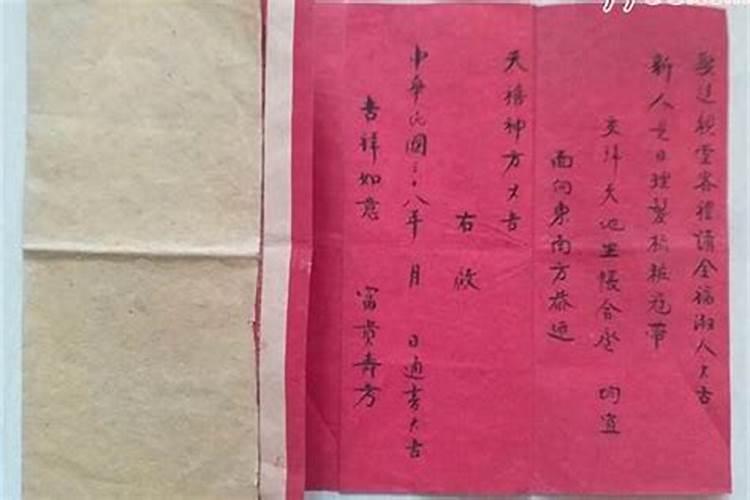 娶送親堂客裡請全福淑人大吉
新人是日理髮梳粧冠帶
交拜天地坐帳合卺 均宜
面向東南方恭迎
天禧神方大吉
右啟
中華民國三十八年 月 日通書大吉
吉祥如意 富貴壽考